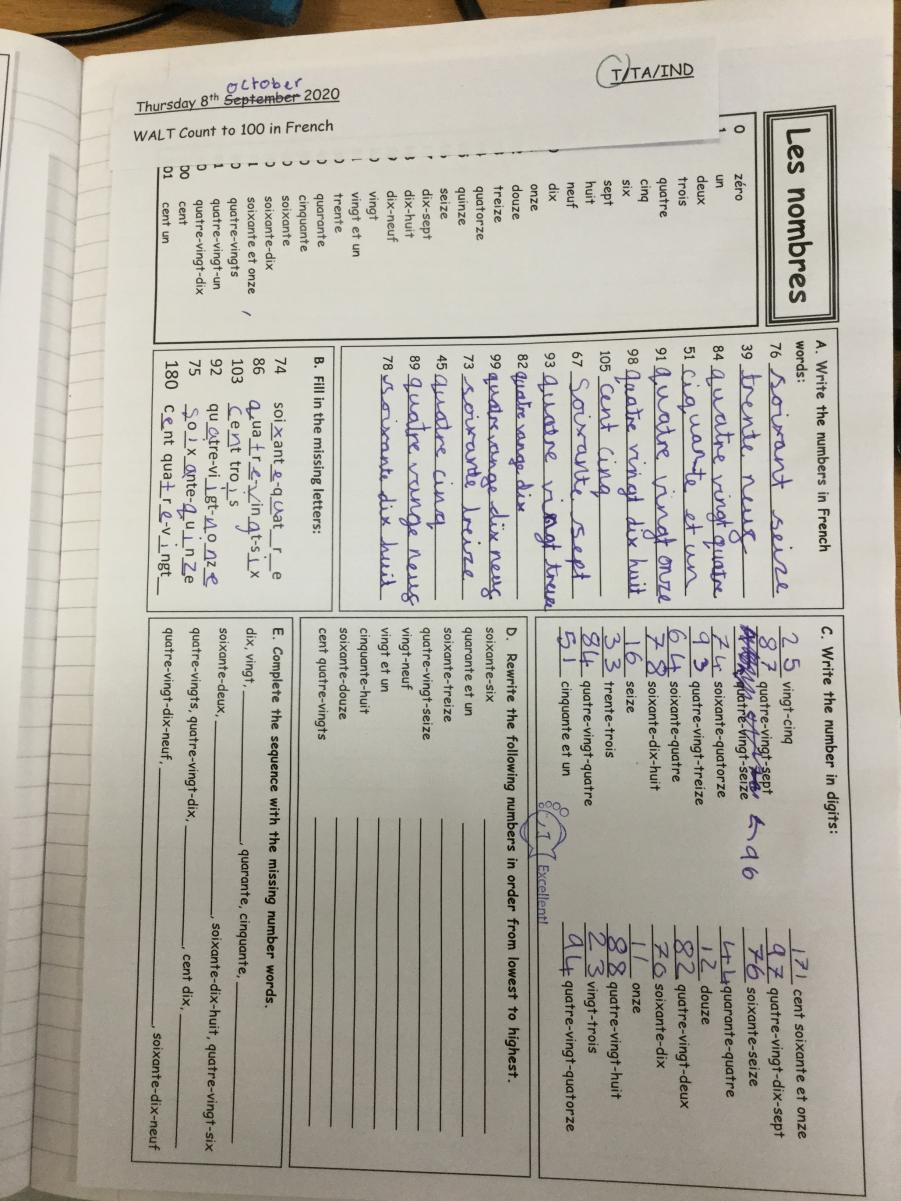 Thursday 8th September October 2020
WALT Count to 100 in French
T/TA/IND
Les nombres
0 zéro
1 un
deux
trois
quatre
cinq
six
sept
huit
neuf
dix
onze
douze
treize
quatorze
quinze
seize
dix-sept
dix-huit
dix-neuf
vingt
vingt et un
trente
quarante
cinquante
soixante
soixante-dix
soixante et onze
quatre-vingts
quatre-vingt-un
quatre-vingt-dix
00 cent
01 cent un
A. Write the numbers in French
words:
76 soixant seize
39 trente neug
84 quatre vingt quatre
51 ciquante et un
91 quatre vingt onze
98 quatre vingt dix huit
105 cent cinq
67 Soixante sept
93 quatre vingt treize
82 quatre vange dix
99 quatre vange dix neug
73 soixante treize
45 quatre cinq
89 quatre vange neug
78 soixante dix huit
B. Fill in the missing letters:
74 soixante-quatr_e
86 quatre-vingt-six
103 cent trois
92 quatre-vi_gt-nonze
75 Soixante-quinze
180 cent quatre-vingt_
C. Write the number in digits:
25 vingt-cinq
87 quatre-vingt-sept
quatre-vingt-seize 96
74 soixante-quatorze
93 quatre-vingt-treize
64 soixante-quatre
78 soixante-dix-huit
16 seize
33 trente-trois
84 quatre-vingt-quatre
51 cinquante et un
171 cent soixante et onze
97 quatre-vingt-dix-sept
76 soixante-seize
44 quarante-quatre
12 douze
82 quatre-vingt-deux
70 soixante-dix
11 onze
88 quatre-vingt-huit
23 vingt-trois
94 quatre-vingt-quatorze
Excellent!
D. Rewrite the following numbers in order from lowest to highest.
soixante-six
quarante et un
soixante-treize
quatre-vingt-seize
vingt-neuf
vingt et un
cinquante-huit
soixante-douze
cent quatre-vingts
E. Complete the sequence with the missing number words.
dix, vingt, ____, quarante, cinquante, ____
soixante-deux, ____, soixante-dix-huit, quatre-vingt-six
quatre-vingts, quatre-vingt-dix, ____, cent dix, ____
quatre-vingt-dix-neuf, ____, soixante-dix-neuf